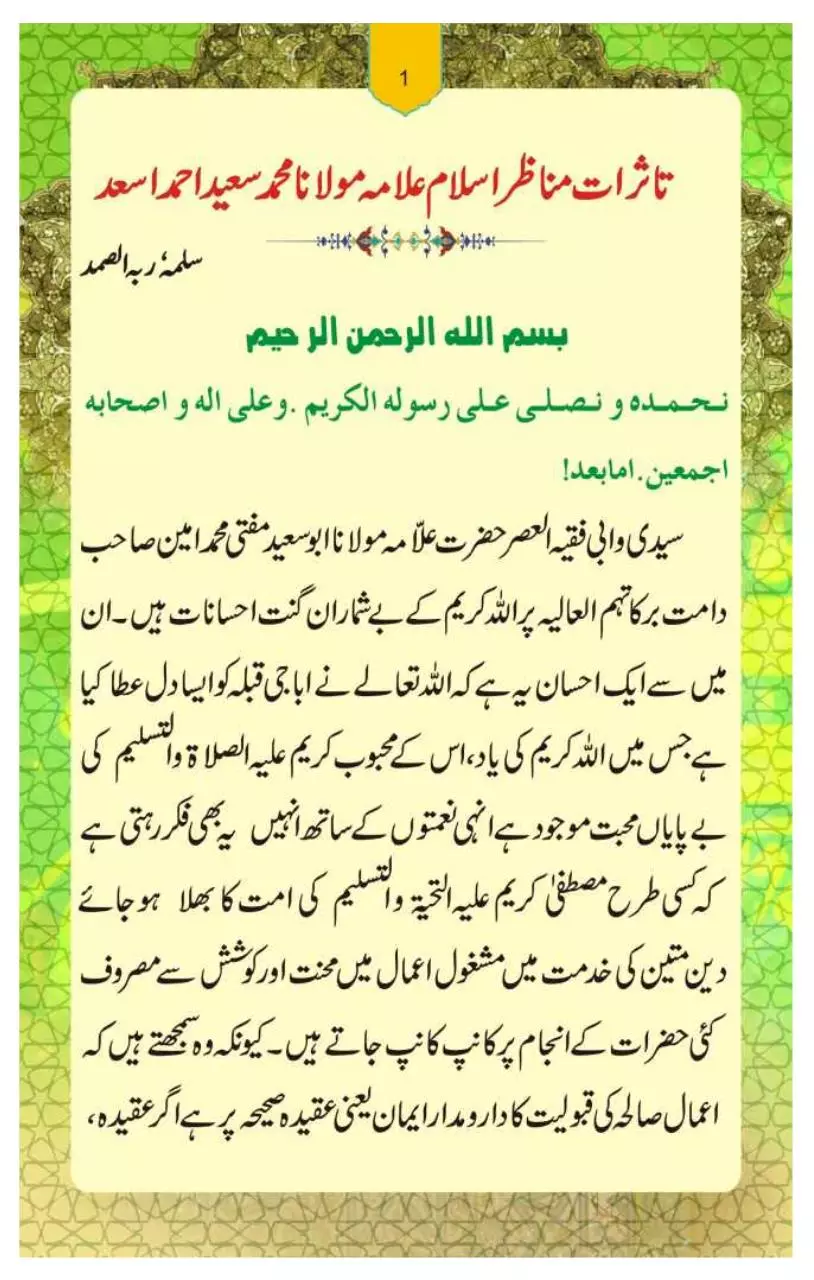 1
تاثرات مناظر اسلام علامہ مولانا محمد سعید احمد اسعد
سلمہٗ ربہ الصمد
بسم الله الرحمن الرحیم
نحمده و نصلی علی رسوله الکریم .وعلی اله و اصحابه
اجمعین. امابعد!
سیدی وابی فقیہ العصر حضرت علّامہ مولانا ابوسعید مفتی محمد امین صاحب
دامت برکاتہم العالیہ پر اللہ کریم کے بے شمار ان گنت احسانات ہیں۔ ان
میں سے ایک احسان یہ ہے کہ اللہ تعالےٰ نے ابا جی قبلہ کو ایسا دل عطا کیا
ہے جس میں اللہ کریم کی یاد، اس کے محبوب کریم علیہ الصلاۃ والتسلیم کی
بے پایاں محبت موجود ہے انہی نعمتوں کے ساتھ انہیں یہ بھی فکر رہتی ہے
کہ کسی طرح مصطفیٰ کریم علیہ التحیۃ والتسلیم کی امت کا بھلا ہو جائے
دین متین کی خدمت میں مشغول اعمال میں محنت اور کوشش سے مصروف
کئی حضرات کے انجام پر کانپ کانپ جاتے ہیں۔ کیونکہ وہ سمجھتے ہیں کہ
اعمال صالحہ کی قبولیت کا دارومدار ایمان یعنی عقیدہ صحیحہ پر ہے اگر عقیدہ،